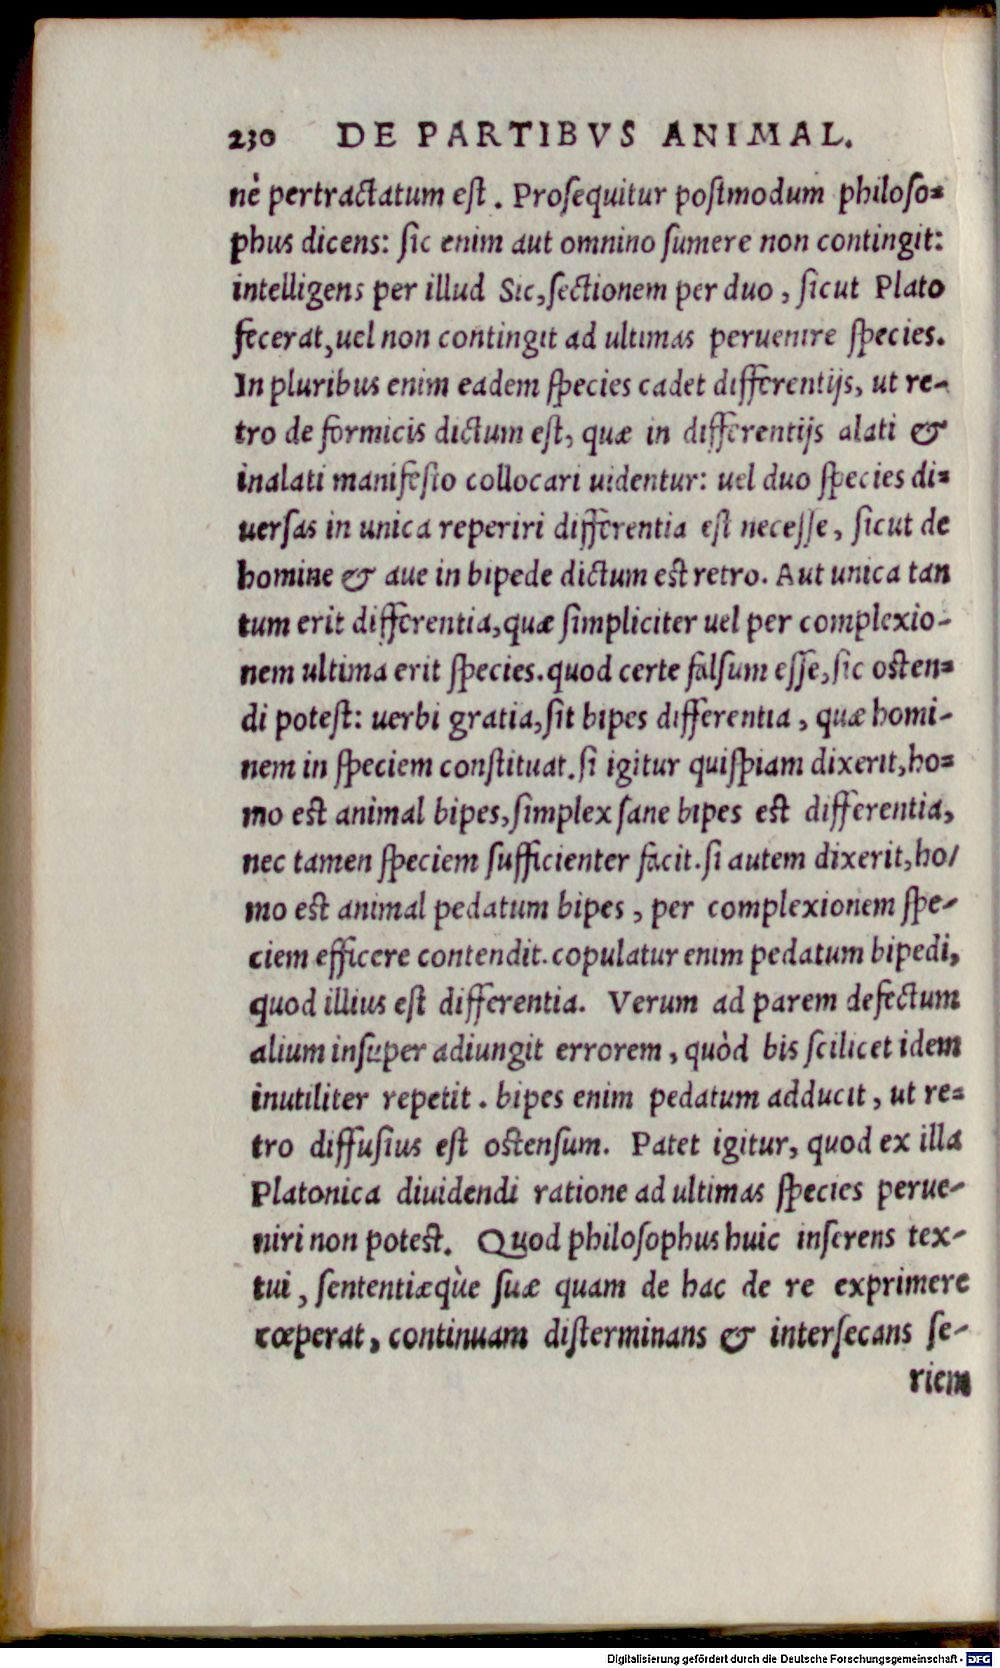 230 DE PARTIBVS ANIMAL.
nè pertractatum est. Prosequitur postmodum philoso=
phus dicens: sic enim aut omnino sumere non contingit:
intelligens per illud Sic, sectionem per duo, sicut Plato
fecerat, uel non contingit ad ultimas peruenire species.
In pluribus enim eadem species cadet differentijs, ut re-
tro de formicis dictum est, quæ in differentijs alati &
inalati manifesto collocari uidentur: uel duo species di=
uersas in unica reperiri differentia est necesse, sicut de
homine & aue in bipede dictum est retro. Aut unica tan
tum erit differentia, quæ simpliciter uel per complexio-
nem ultima erit species. quod certe falsum esse, sic osten=
di potest: uerbi gratia, sit bipes differentia, quæ homi-
nem in speciem constituat. si igitur quispiam dixerit, ho=
mo est animal bipes, simplex sane bipes est differentia,
nec tamen speciem sufficienter facit. si autem dixerit, ho/
mo est animal pedatum bipes, per complexionem spe-
ciem efficere contendit. copulatur enim pedatum bipedi,
quod illius est differentia. Verum ad parem defectum
alium insuper adiungit errorem, quòd bis scilicet idem
inutiliter repetit. bipes enim pedatum adducit, ut re=
tro diffusius est ostensum. Patet igitur, quod ex illa
Platonica diuidendi ratione ad ultimas species perue-
niri non potest. Quod philosophus huic inserens tex-
tui, sententiæquè suæ quam de hac de re exprimere
cœperat, continuam disterminans & intersecans se-
riem
Digitalisierung gefördert durch die Deutsche Forschungsgemeinschaft - DFG